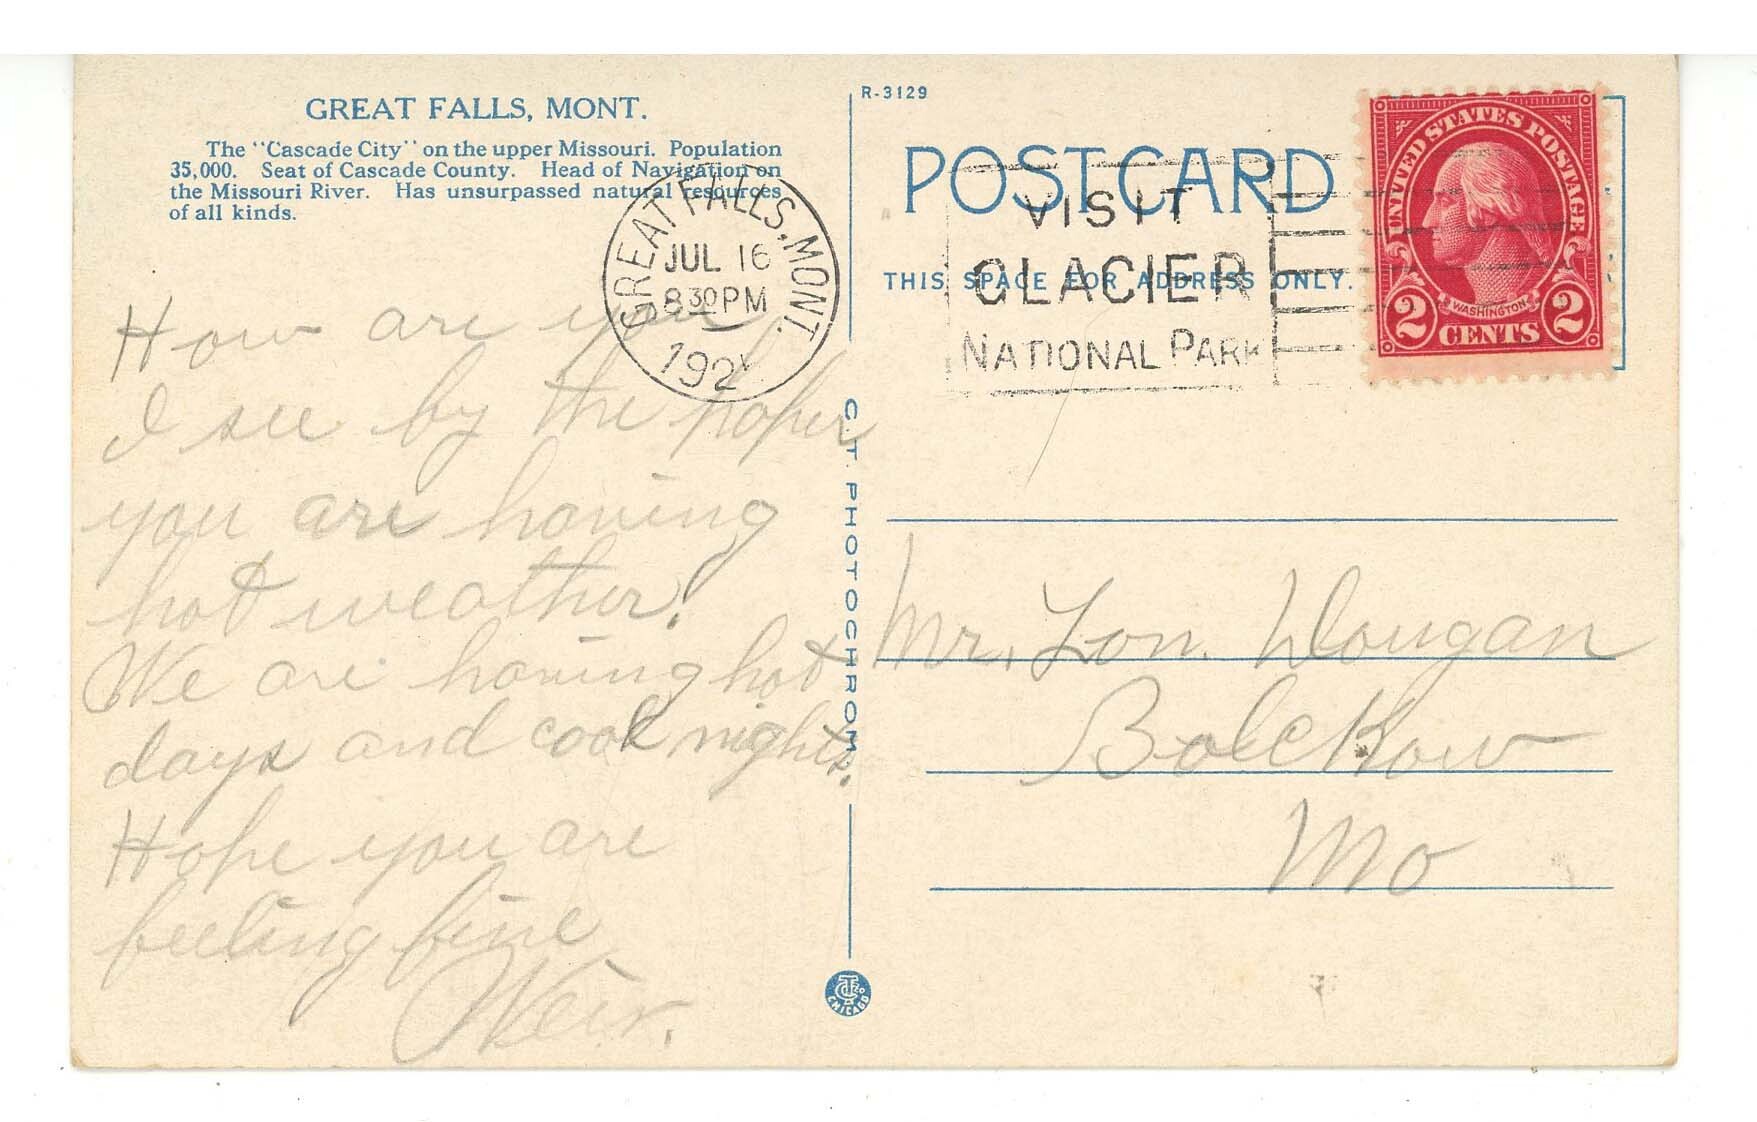 GREAT FALLS, MONT.
The "Cascade City" on the upper Missouri. Population
35,000. Seat of Cascade County. Head of Navigation on
the Missouri River. Has unsurpassed natural resources
of all kinds.
GREAT FALLS, MONT.
JUL 16
8 30 PM
How are you
I see by the paper
you are having
hot weather.
We are having hot
days and cool nights.
Hope you are
feeling fine
Weir.
C.T. PHOTOCHROM
CTCo
CHICAGO
R-3129
POST CARD
THIS SPACE FOR ADDRESS ONLY.
VISIT
GLACIER
NATIONAL PARK
UNITED STATES POSTAGE
WASHINGTON
2 CENTS 2
Mr. Lon. Dougan
Bolckow
Mo